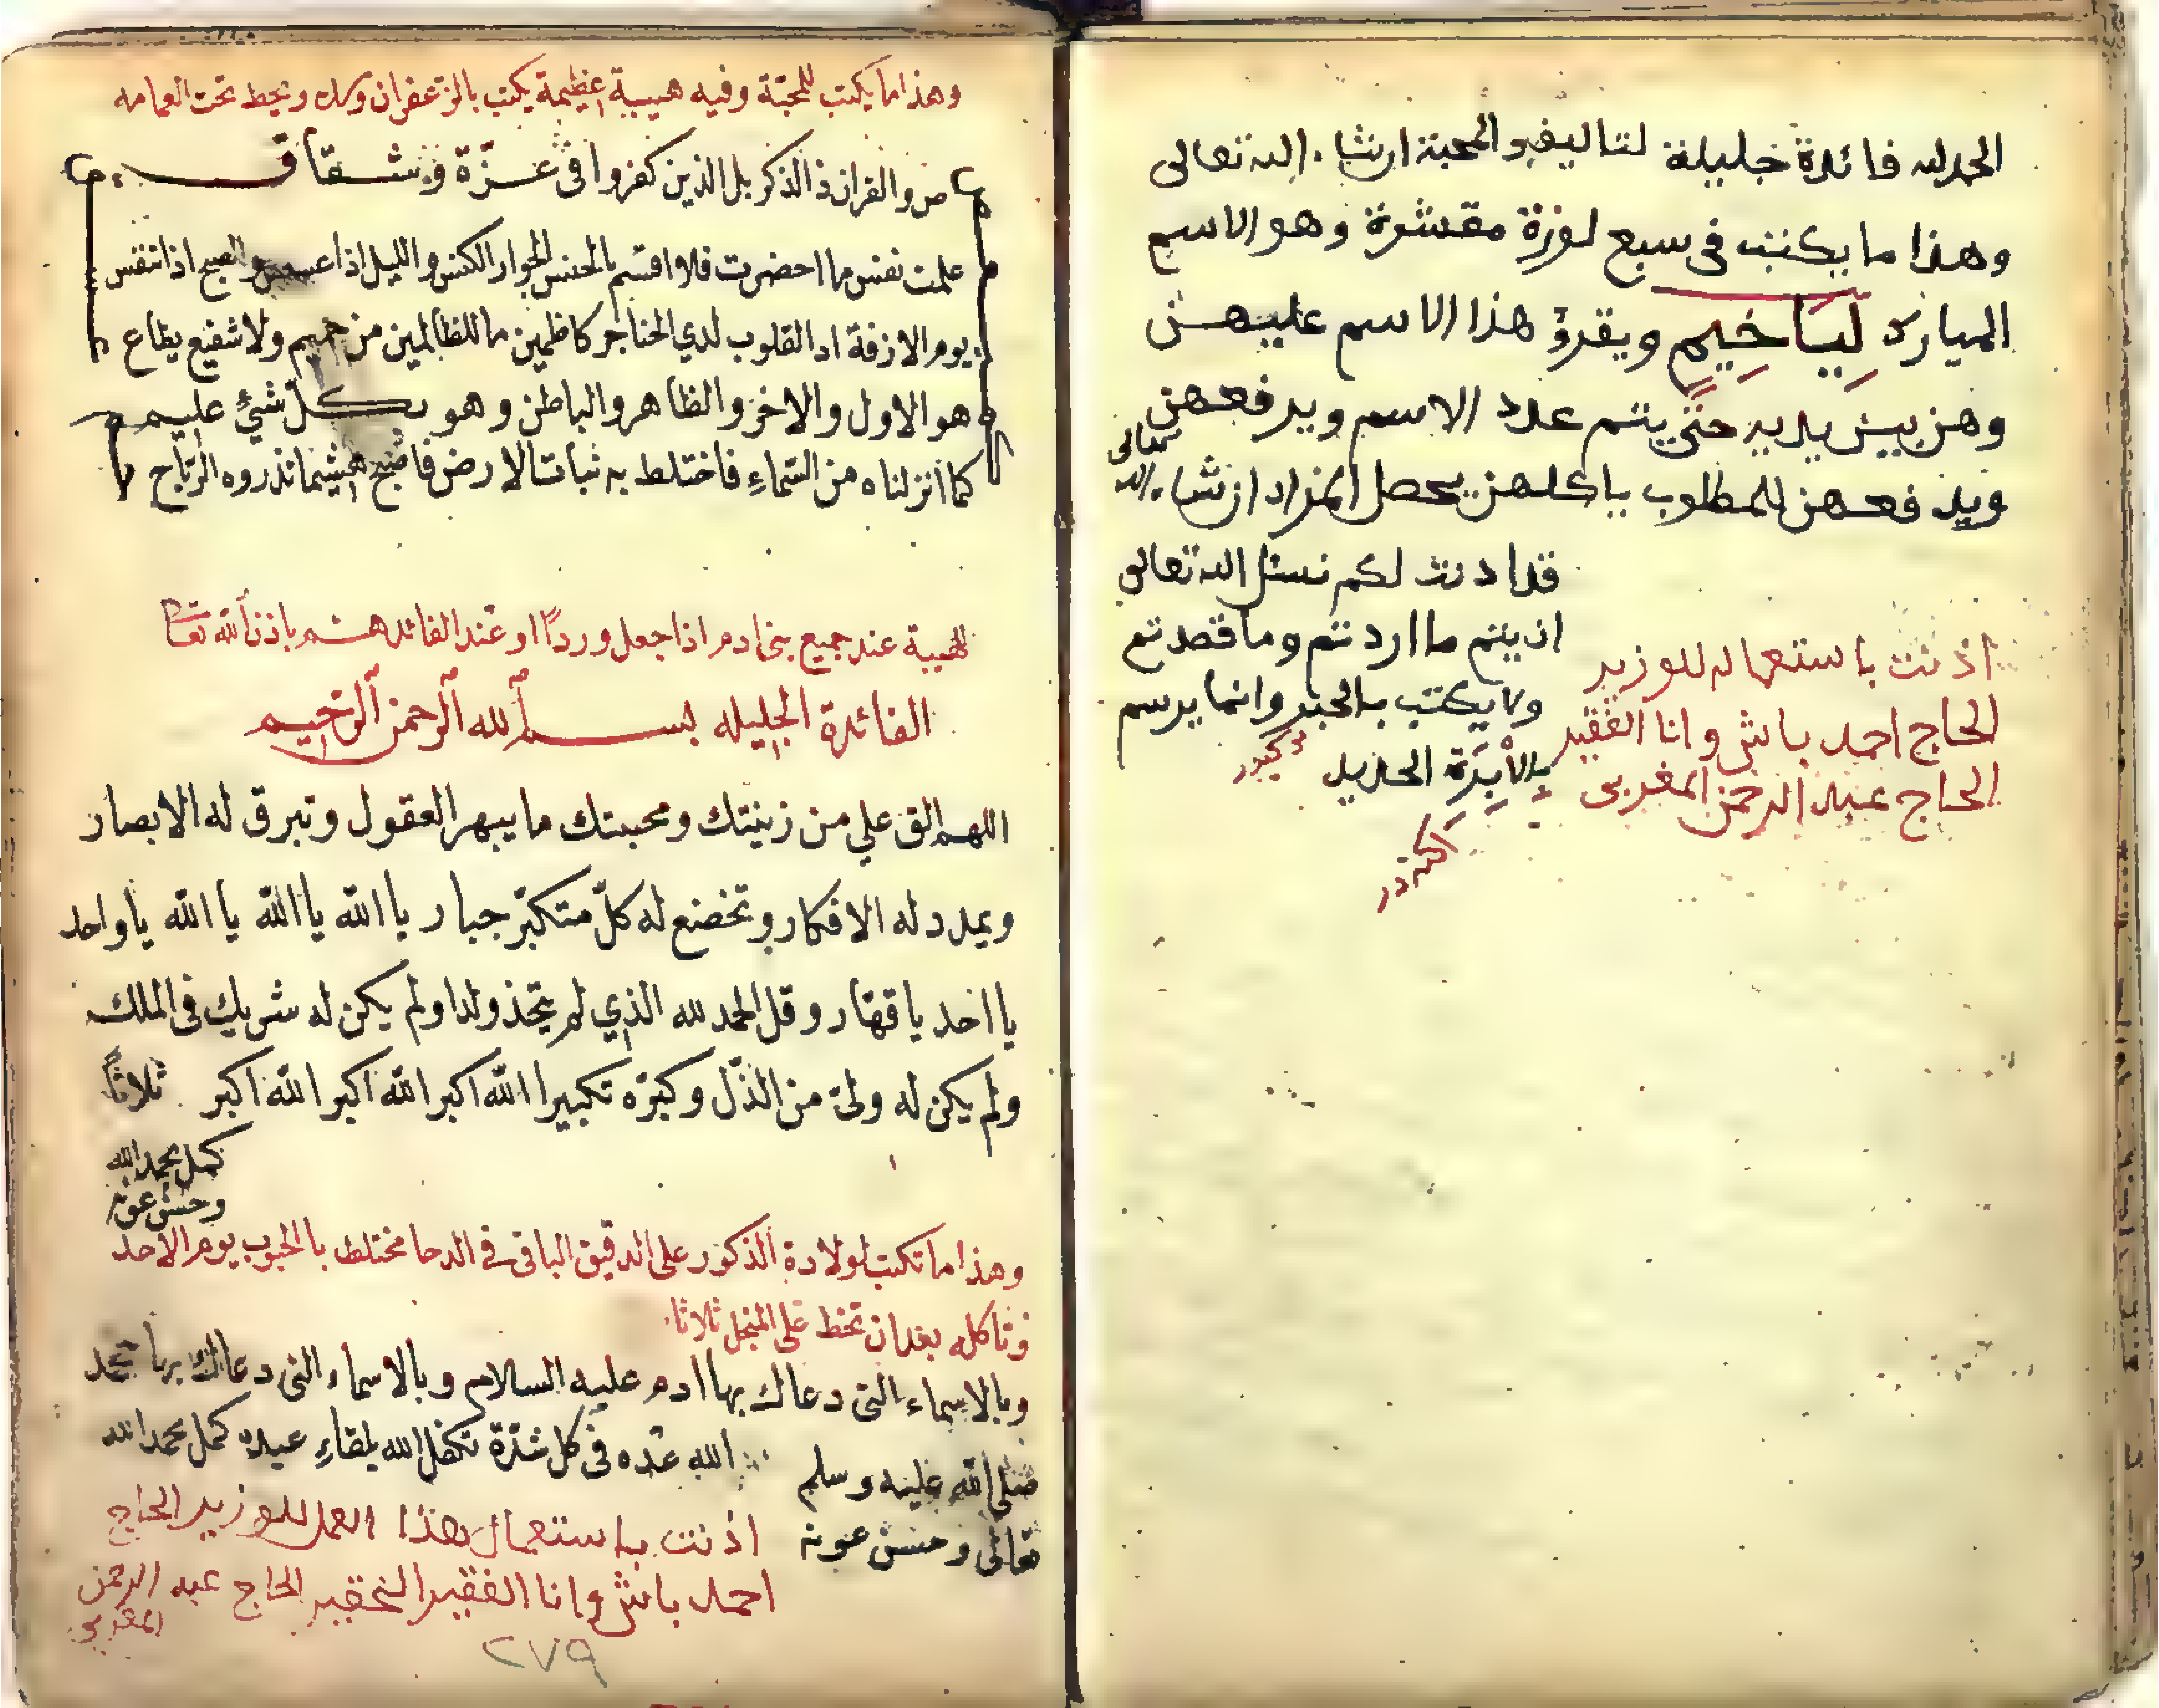 الحمد لله فائدة جليلة لتاليف والمحبة ان شاء الله تعالى
وهذا ما يكتب في سبع لوزة مقشرة وهو الاسم
المبارك لِيَاخِيم ويقرؤ هذا الاسم عليهن
وهن بين يديه حتى يتم عدد الاسم ويدفعهن
ويدفعهن للمطلوب ياكلهن يحصل المراد ان شاء الله
تعالى
قد اذنت لكم نسئل الله تعالى
ان يتم ما اردتم وما قصدتم
ولا يكتب بالحبر وانما يرسم
بالأبرة الحديد
اذنت باستعماله للوزير
الحاج احمد باش وانا الفقير
الحاج عبد الرحمن المغربى
وهذا ما يكتب للمحبة وفيه هيبة عظيمة يكتب بالزعفران ويحط تحت العمامه
ص والقران ذ الذكر بل الذين كفروا في عزّة وشقاق
علمت نفس ما احضرت فلا اقسم بالخنس الجوار الكنس والليل اذا عسعس والصبح اذا تنفس
يوم الازفة اذ القلوب لدي الحناجر كاظمين ما للظالمين من حميم ولا شفيع يطاع
هو الاول والاخر والظاهر والباطن وهو بكل شيء عليم
كما انزلناه من السماء فاختلط به نبات الارض فاصبح هشيما تذروه الرياح
للهيبة عند جميع بني ادم اذا جعل وردًا او عند القائد باذن الله تعا
الفائدة الجليله بسم الله الرحمن الرحيم
اللهم الق علي من زينتك ومحبتك ما يبهر العقول وتبرق له الابصار
ويمدد له الافكار وتخضع له كلّ متكبّر جبار يا الله يا الله يا الله يا واحد
يا احد يا قهّار وقل الحمد لله الذي لم يتخذ ولدا ولم يكن له شريك في الملك
ولم يكن له وليّ من الذّل وكبّره تكبيرا الله اكبر الله اكبر الله اكبر ثلاثًا
كمل بحمد الله
وحسن عونه
وهذا ما تكتب لولادة الذكور على الدقيق الباقي في الرحا مختلط بالحبوب يوم الاحد
وتاكله بعد ان تخط على المنجل ثلاثا
وبالاسماء التي دعاك بها ادم عليه السلام وبالاسماء التي دعاك بها محمد
صلى الله عليه وسلم الله عدّه في كل شدّة تكفل الله بلقاء عبده كمل بحمد الله
تعالى وحسن عونه
اذنت باستعمال هذا العمل للوزير الحاج
احمد باش وانا الفقير الحقير الحاج عبد الرحمن
المغربي
٢٧٩